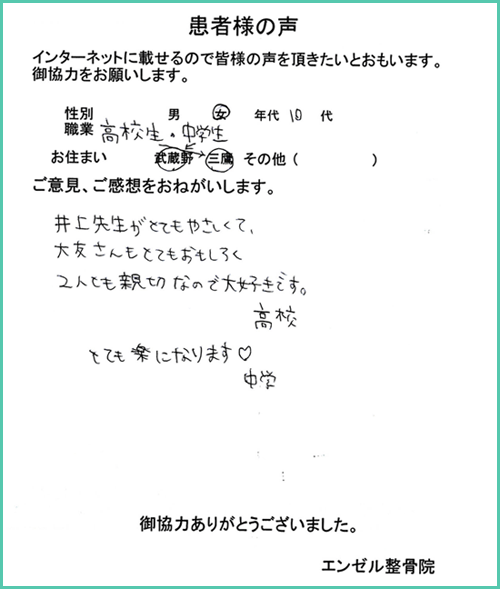 患者様の声
インターネットに載せるので皆様の声を頂きたいとおもいます。
御協力をお願いします。
性別 男 女 年代 10 代
職業 高校生・中学生
お住まい 武蔵野 三鷹 その他（ ）
ご意見、ご感想をおねがいします。
井上先生がとてもやさしくて、
大友さんもとてもおもしろく
2人とも親切なので大好きです。
高校
とても楽になります♡
中学
御協力ありがとうございました。
エンゼル整骨院